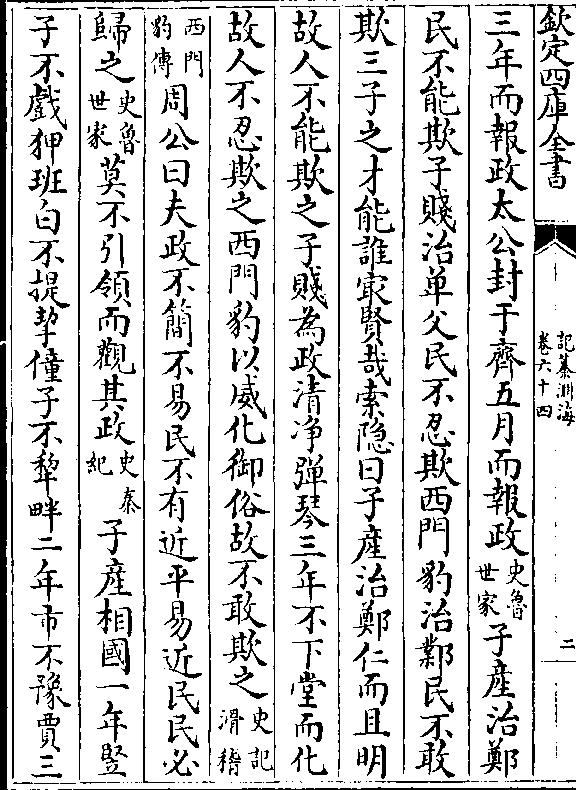 欽定四庫全書
記纂淵海
卷六十四
二
三年而報政太公封于齊五月而報政史魯世家子産治鄭
民不能欺子賤治單父民不忍欺西門豹治鄴民不敢
欺三子之才能誰最賢哉索隐曰子產治鄭仁而且明
故人不能欺之子賤為政清净彈琴三年不下堂而化
故人不忍欺之西門豹以威化御俗故不敢欺之史記滑稽
西門豹傳周公曰夫政不簡不易民不有近平易近民民必
歸之史魯世家莫不引領而觀其政史秦紀子產相國一年豎
子不戲狎班白不提挈僮子不犂畔二年市不豫賈三